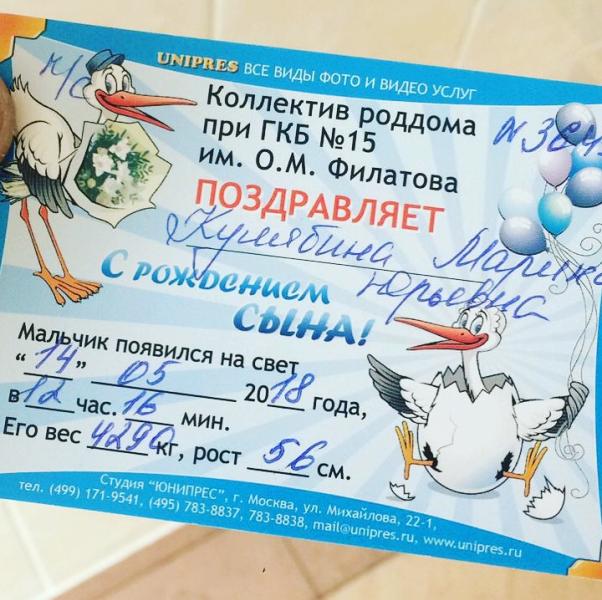 UNIPRES ВСЕ ВИДЫ ФОТО И ВИДЕО УСЛУГ
Коллектив роддома
при ГКБ №15
им. О.М. Филатова
ПОЗДРАВЛЯЕТ
Кулябина Марина
Юрьевна
С РОЖДЕНИЕМ
СЫНА!
Мальчик появился на свет
“14” 05 2018 года,
в 12 час. 16 мин.
Его вес 4290 кг, рост 56 см.
Студия “ЮНИПРЕС”, г. Москва, ул. Михайлова, 22-1,
тел. (499) 171-9541, (495) 783-8837, 783-8838, mail@unipres.ru, www.unipres.ru